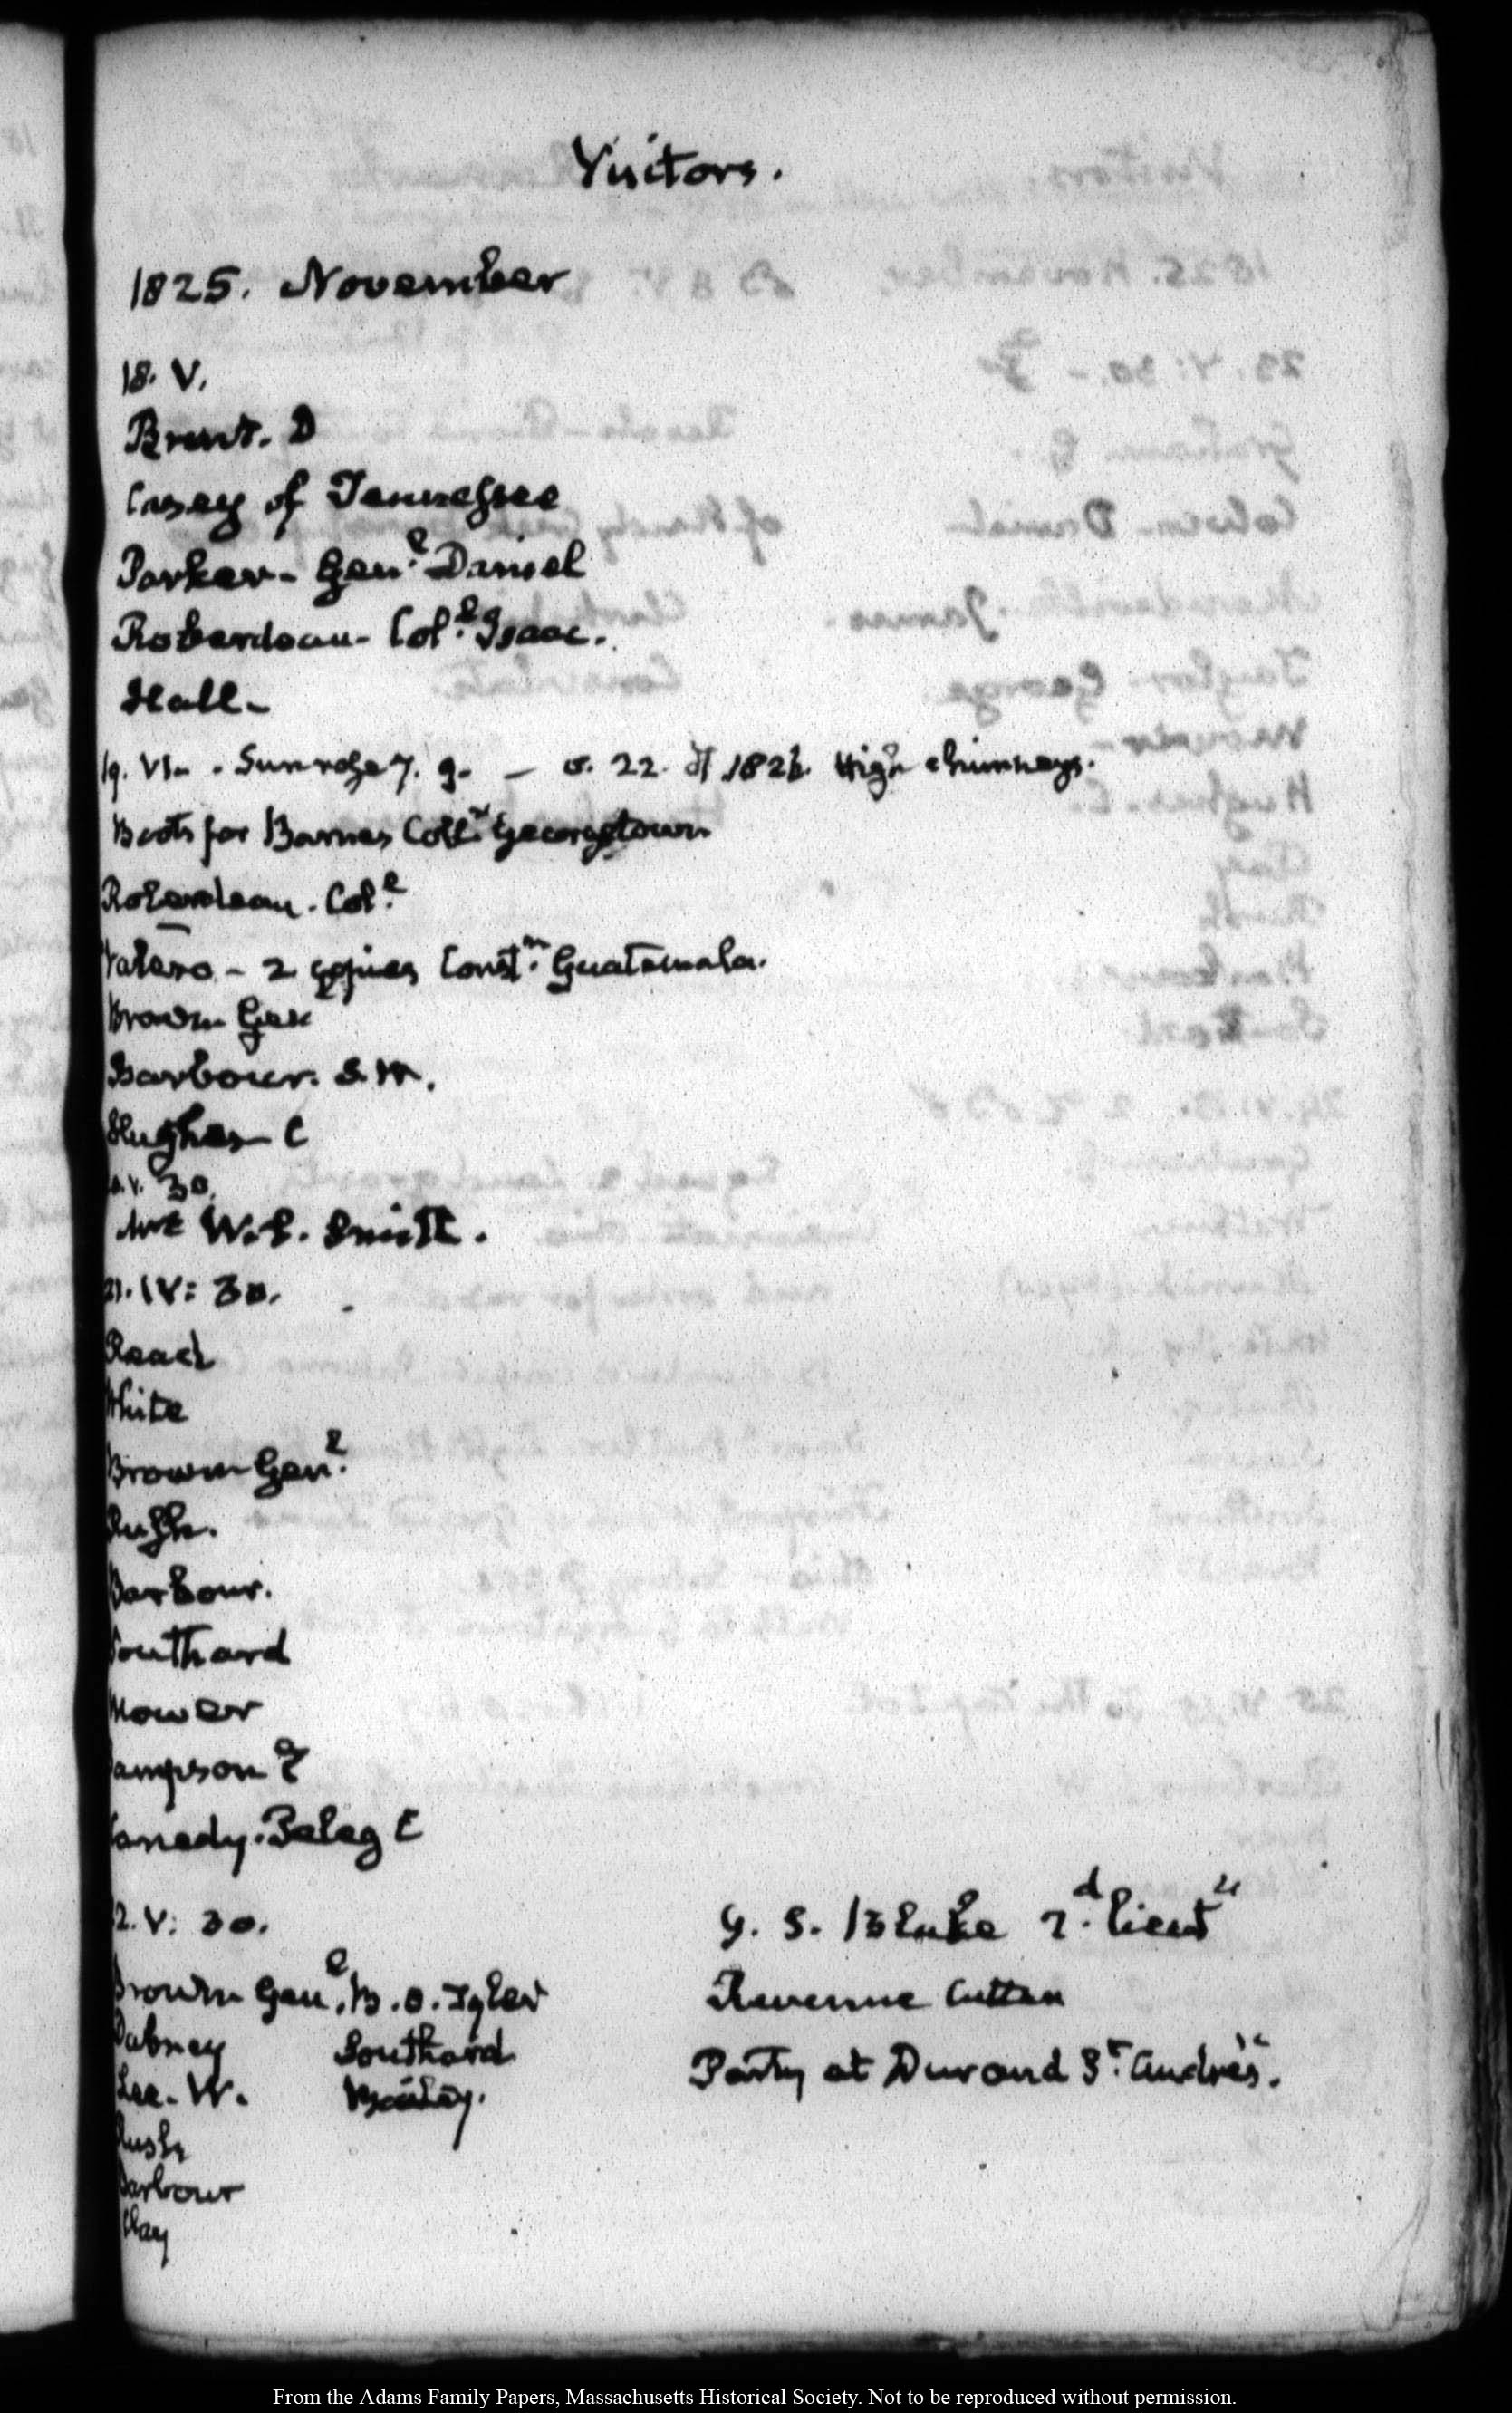 Visitors.
1825. November
18. V.
Brent. D
Casey of Tennessee
Parker- Genl. Daniel
Roberdeau- Coll. Isaac.
Hall-
19. VI. . Sun rose 7. 9. — 22. of 182 High chimneys.
Boots for Barnes Georgetown
Roberdeau. Coll.
2 copies Constn. Guatemala.
Brown Gen
Barbour. S. W.
Hughes C
V. 30.
W. S. Smith.
21. IV: 30.
Read
White
Brown Genl.
Rush.
Barbour.
Southard
Mower
ampson
anedy. Peleg
2. V: 30.
G. S. Blake 2d. Lieut
Brown Genl. B. O. Tyler
Revenue Cutter
Dabney Southard
Party at Durand St. André's.
Lee. W. Bailey.
Rush
Barbour
Clay
From the Adams Family Papers, Massachusetts Historical Society. Not to be reproduced without permission.